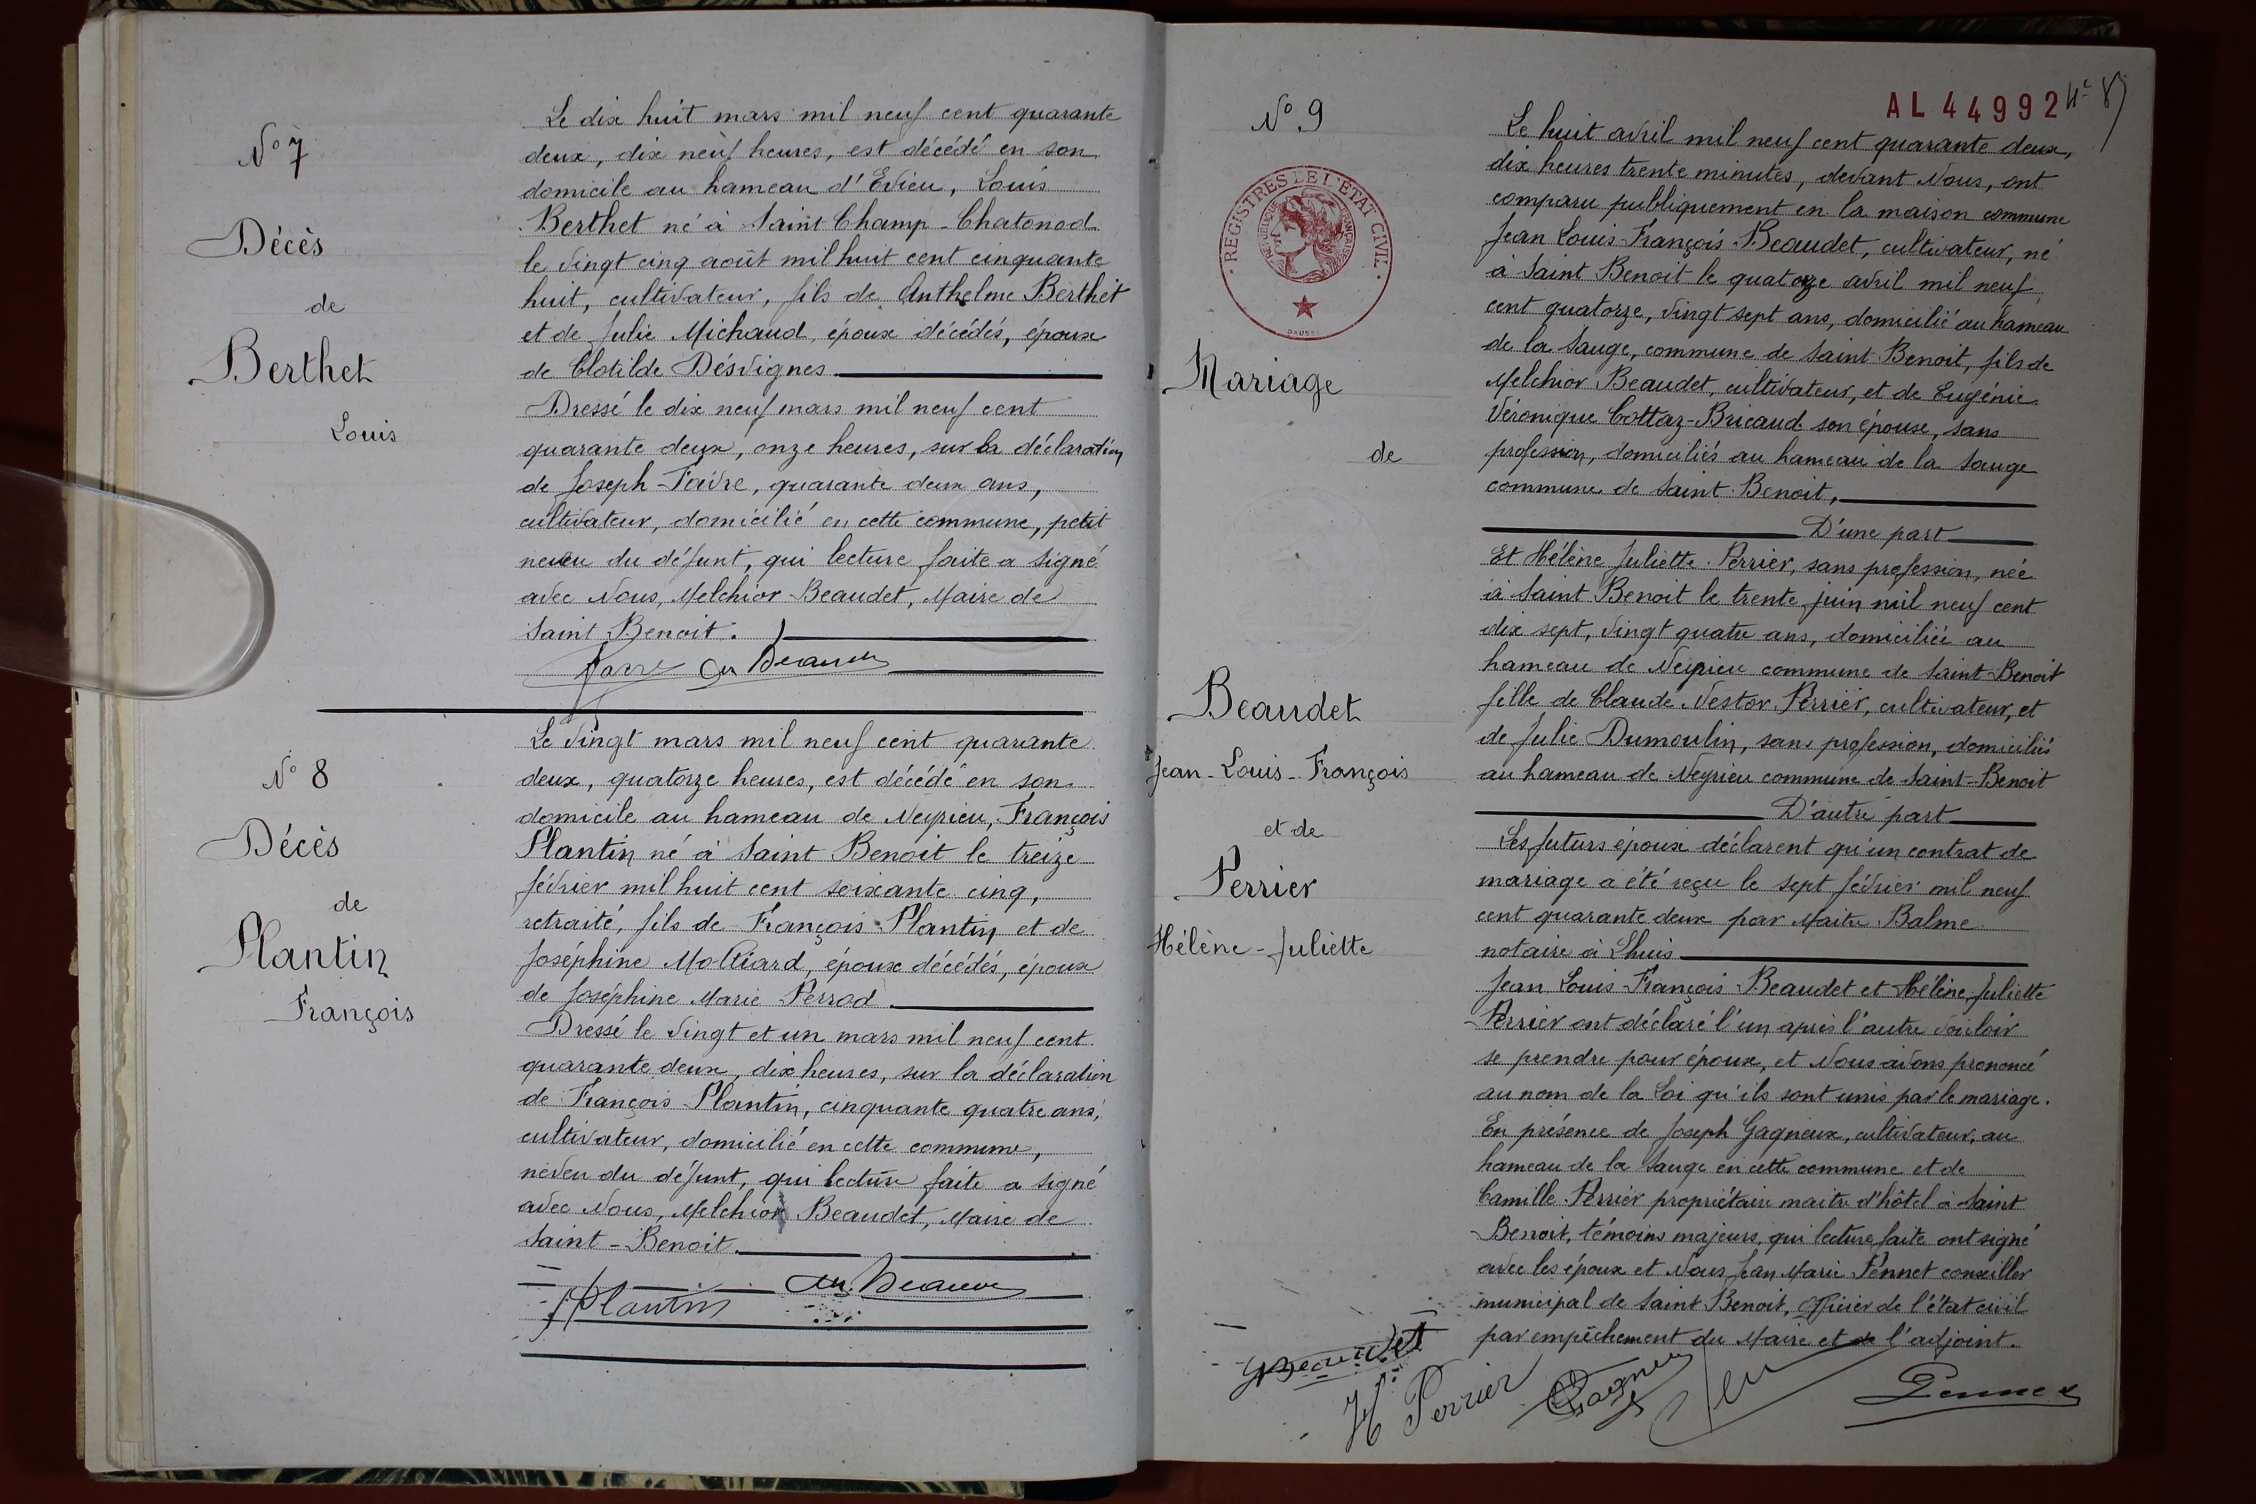 N° 7
Décès
de
Berthet
Louis
Le dix huit mars mil neuf cent quarante
deux, dix neuf heures, est décédé en son
domicile au hameau d'Evieu, Louis
Berthet né à Saint Champ-Chatonod
le vingt cinq août mil huit cent cinquante
huit, cultivateur, fils de Anthelme Berthet
et de Julie Michaud, époux décédés, époux
de Clotilde Désvignes
Dressé le dix neuf mars mil neuf cent
quarante deux, onze heures, sur la déclaration
de Joseph Favre, quarante deux ans,
cultivateur, domicilié en cette commune, petit
neveu du défunt, qui lecture faite a signé
avec Nous, Melchior Beaudet, Maire de
Saint Benoit.
N° 8
Décès
de
Plantin
François
Le vingt mars mil neuf cent quarante
deux, quatorze heures, est décédé en son
domicile au hameau de Neyrieu, François
Plantin né à Saint Benoit le treize
février mil huit cent soixante cinq,
retraité, fils de François Plantin et de
Joséphine Molliard, époux décédés, époux
de Joséphine Marie Perrod
Dressé le vingt et un mars mil neuf cent
quarante deux, dix heures, sur la déclaration
de François Plantin, cinquante quatre ans,
cultivateur, domicilié en cette commune,
neveu du défunt, qui lecture faite a signé
avec Nous, Melchior Beaudet, Maire de
Saint-Benoit
Plantin
AL 44992
N° 9
REGISTRES DE L'ETAT CIVIL
REPUBLIQUE FRANÇAISE
Mariage
de
Beaudet
Jean-Louis-François
et de
Perrier
Hélène-Juliette
Le huit avril mil neuf cent quarante deux,
dix heures trente minutes, devant Nous, ont
comparu publiquement en la maison commune
Jean Louis François Beaudet, cultivateur, né
à Saint Benoit le quatorze avril mil neuf
cent quatorze, vingt sept ans, domicilié au hameau
de la Sauge, commune de Saint Benoit, fils de
Melchior Beaudet, cultivateur, et de Eugénie
Véronique Cottaz-Bricaud son épouse, sans
profession, domiciliés au hameau de la Sauge
commune de Saint Benoit,
D'une part
Et Hélène Juliette Perrier, sans profession, née
à Saint Benoit le trente juin mil neuf cent
dix sept, vingt quatre ans, domiciliée au
hameau de Neyrieu commune de Saint-Benoit
fille de Claude Nestor Perrier, cultivateur, et
de Julie Dumoulin, sans profession, domiciliés
au hameau de Neyrieu commune de Saint-Benoit
D'autre part
Les futurs époux déclarent qu'un contrat de
mariage a été reçu le sept février mil neuf
cent quarante deux par Maitre Balme
notaire à Lhuis
Jean Louis François Beaudet et Hélène Juliette
Perrier ont déclaré l'un après l'autre vouloir
se prendre pour époux, et Nous avons prononcé
au nom de la Loi qu'ils sont unis par le mariage.
En présence de Joseph Gagneux, cultivateur, au
hameau de la Sauge en cette commune et de
Camille Perrier propriétaire maitre d'hôtel à Saint
Benoit, témoins majeurs, qui lecture faite ont signé
avec les époux et Nous Jean Marie Pennet conseiller
municipal de Saint Benoit, officier de l'état civil
par empêchement du Maire et de l'adjoint.
Beaudet
H Perrier
Gagneux
Pennet